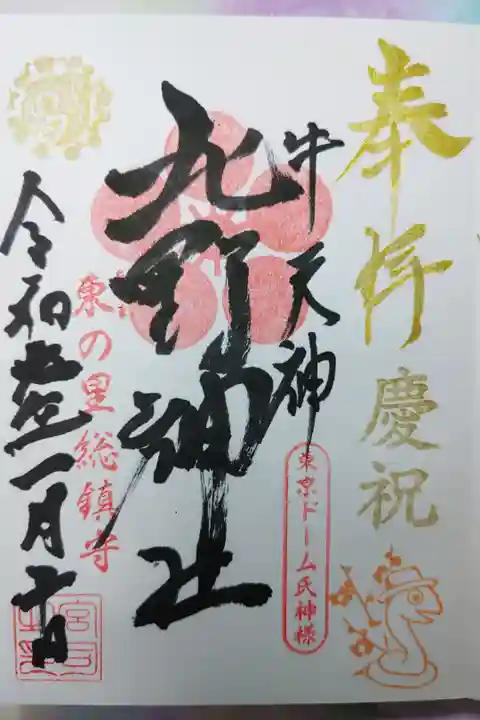 奉拝
慶祝
牛天神
北野神社
東京ドーム氏神様
東の里総鎮守
令和七年一月十日